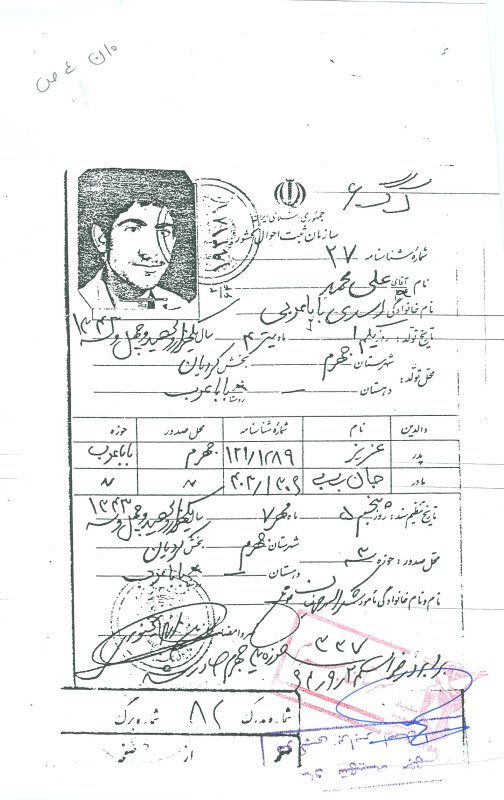 جمهوری اسلامی ایران
سازمان ثبت احوال کشور
شماره شناسنامه ۲۷
نام آقای علی محمد
نام خانوادگی اسدی باباعربی
تاریخ تولد: روز یکم ۱ ماه تیر ۴ سال یکهزار و سیصد و چهل و سه ۱۳۴۳
محل تولد: شهرستان جهرم بخش کردیان
دهستان — روستا باباعرب
والدین نام شماره شناسنامه محل صدور حوزه
پدر عزیز ۱۲۱/۱۲۸۹ جهرم باباعرب
مادر جان بی بی ۴۰۲/۱۳۰۶ " "
تاریخ تنظیم سند: روز پنجم ۵ ماه مهر ۷ سال یکهزار و سیصد و چهل و سه ۱۳۴۳
محل صدور: حوزه ۳ شهرستان جهرم بخش کردیان
دهستان — باباعرب
نام و نام خانوادگی مامور
شماره مدرک ۸۲ شماره برگ
صفحه از صفحه